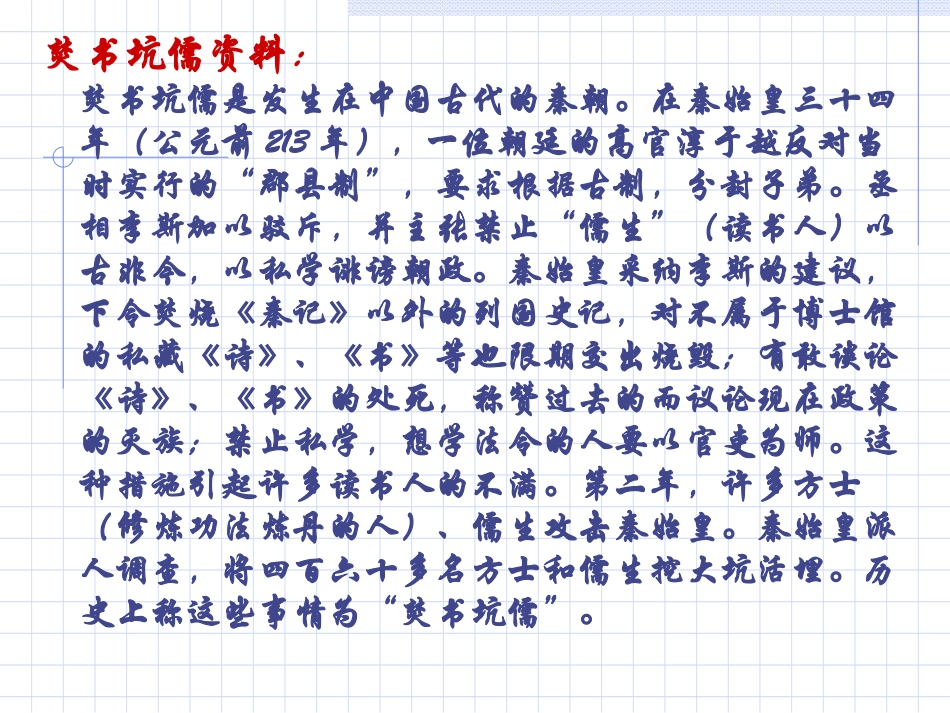 焚书坑儒资料：
焚书坑儒是发生在中国古代的秦朝。在秦始皇三十四
年（公元前213年），一位朝廷的高官淳于越反对当
时实行的“郡县制”，要求根据古制，分封子弟。丞
相李斯加以驳斥，并主张禁止“儒生”（读书人）以
古非今，以私学诽谤朝政。秦始皇采纳李斯的建议，
下令焚烧《秦记》以外的列国史记，对不属于博士馆
的私藏《诗》、《书》等也限期交出烧毁；有敢谈论
《诗》、《书》的处死，称赞过去的而议论现在政策
的灭族；禁止私学，想学法令的人要以官吏为师。这
种措施引起许多读书人的不满。第二年，许多方士
（修炼功法炼丹的人）、儒生攻击秦始皇。秦始皇派
人调查，将四百六十多名方士和儒生挖大坑活埋。历
史上称这些事情为“焚书坑儒”。